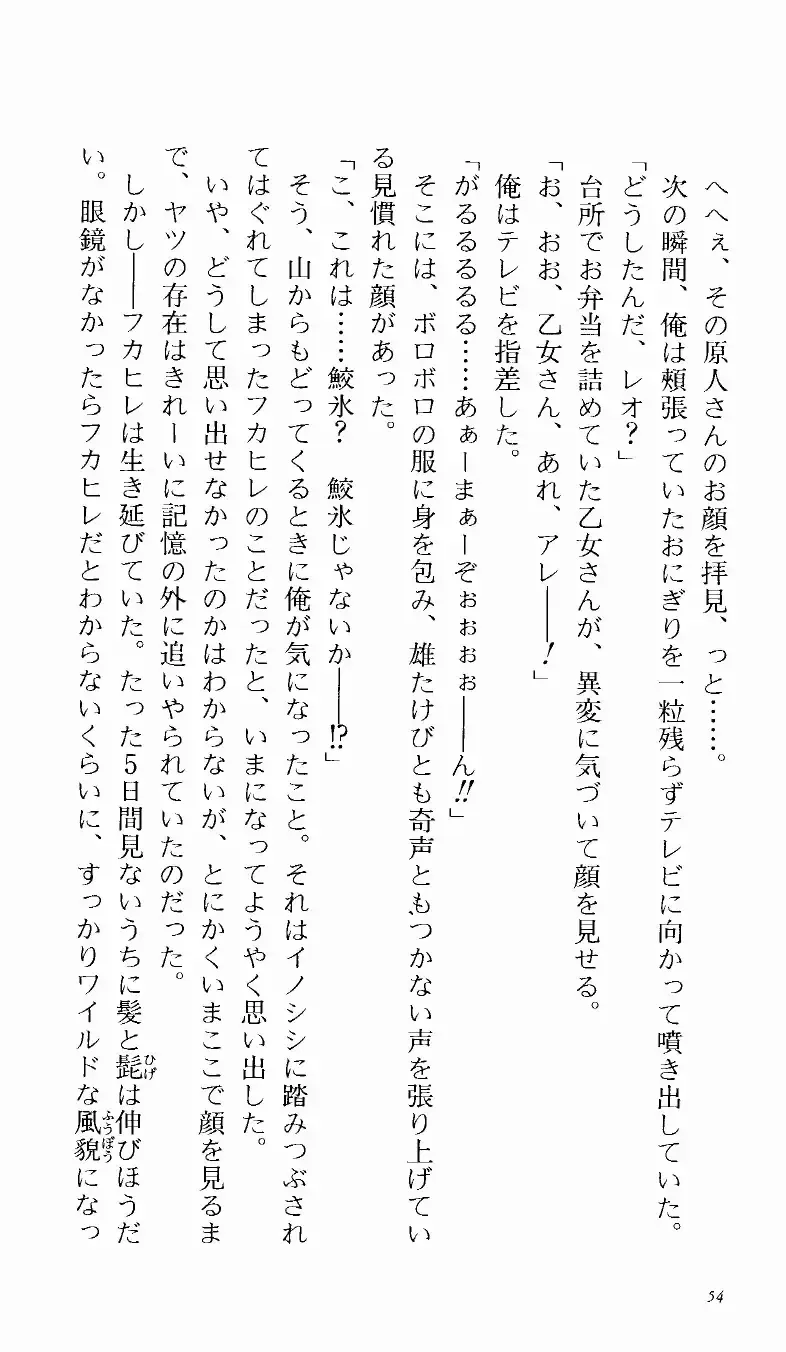 へへぇ、その原人さんのお顔を拝見、っと……。
次の瞬間、俺は頬張っていたおにぎりを一粒残らずテレビに向かって噴き出していた。
「どうしたんだ、レオ？」
台所でお弁当を詰めていた乙女さんが、異変に気づいて顔を見せる。
「お、おお、乙女さん、あれ、アレ――！」
俺はテレビを指差した。
「がるるるるる……あぁーまぁーぞぉぉぉぉ――ん!!」
そこには、ボロボロの服に身を包み、雄たけびとも奇声ともつかない声を張り上げてい
る見慣れた顔があった。
「こ、これは……鮫氷？　鮫氷じゃないか――!?」
そう、山からもどってくるときに俺が気になったこと。それはイノシシに踏みつぶされ
てはぐれてしまったフカヒレのことだったと、いまになってようやく思い出した。
いや、どうして思い出せなかったのかはわからないが、とにかくいまここで顔を見るま
で、ヤツの存在はきれーいに記憶の外に追いやられていたのだった。
しかし――フカヒレは生き延びていた。たった５日間見ないうちに髪と髭ひげは伸びほうだ
い。眼鏡がなかったらフカヒレだとわからないくらいに、すっかりワイルドな風貌ふうぼうになっ
54